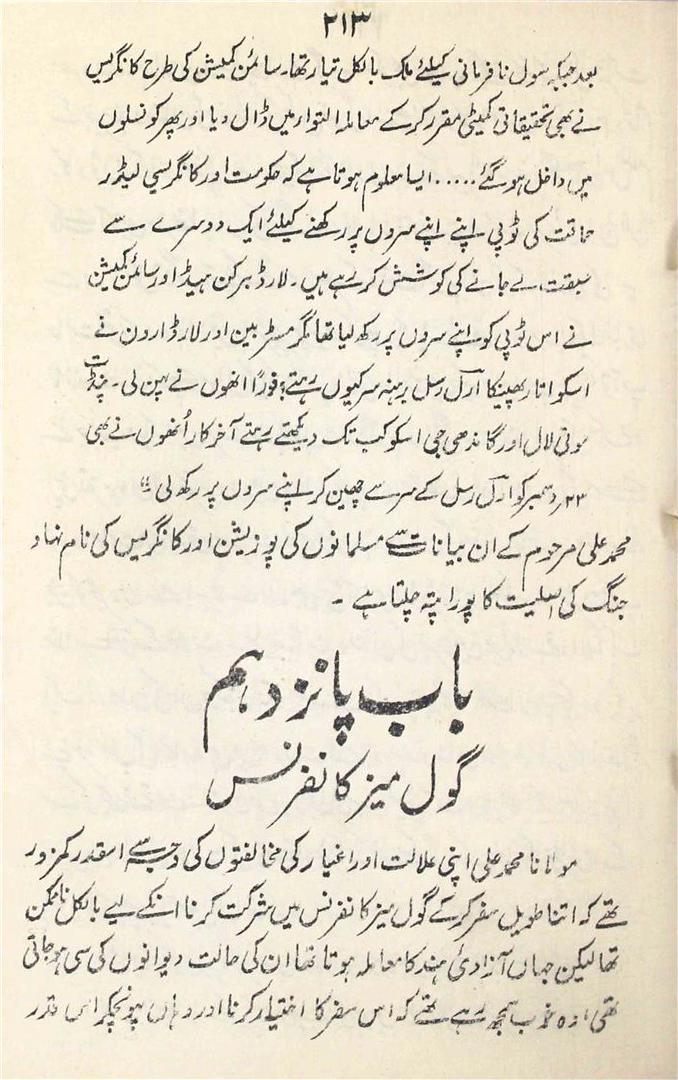 ۲۱۳
بعد جبکہ سول نافرمانی کیلئے ملک بالکل تیار تھا۔ سائمن کمیشن کی طرح کانگریس
نے بھی تحقیقاتی کمیٹی مقرر کر کے معاملہ التوار میں ڈال دیا اور پھر کونسلوں
میں داخل ہو گئے ..... ایسا معلوم ہوتا ہے کہ حکومت اور کانگریسی لیڈر
حماقت کی ٹوپی اپنے اپنے سروں پر رکھنے کیلئے ایک دوسرے سے
سبقت لے جانے کی کوشش کر رہے ہیں۔ لارڈ برکن ہیڈ اور سائمن کمیشن
نے اس ٹوپی کو اپنے سروں پر رکھ لیا تھا مگر مسٹر بین اور لارڈ اردن نے
اسکو اتار پھینکا ارل رسل برہنہ سر کیوں رہتے؟ فوراً انھوں نے پہن لی۔ پنڈت
موتی لال اور گاندھی جی اسکو کب تک دیکھتے رہتے آخر کار اُنھوں نے بھی
۲۳ دسمبر کو ارل رسل کے سر سے چھین کر اپنے سروں پر رکھ لی"
محمد علی مرحوم کے ان بیانات سے مسلمانوں کی پوزیشن اور کانگریس کی نام نہاد
جنگ کی اصلیت کا پورا پتہ چلتا ہے ۔
باب پانزدہم
گول میز کانفرنس
مولانا محمد علی اپنی علالت اور اغیار کی مخالفتوں کی وجہ سے اسقدر کمزور
تھے کہ اتنا طویل سفر کر کے گول میز کانفرنس میں شرکت کرنا انکے لیے بالکل ناممکن
تھا لیکن جہاں آزادئ ہند کا معاملہ ہوتا تھا ان کی حالت دیوانوں کی سی ہو جاتی
تھی وہ خوب سمجھ رہے تھے کہ اس سفر کا اختیار کرنا اور وہاں پہونچکر اس قدر